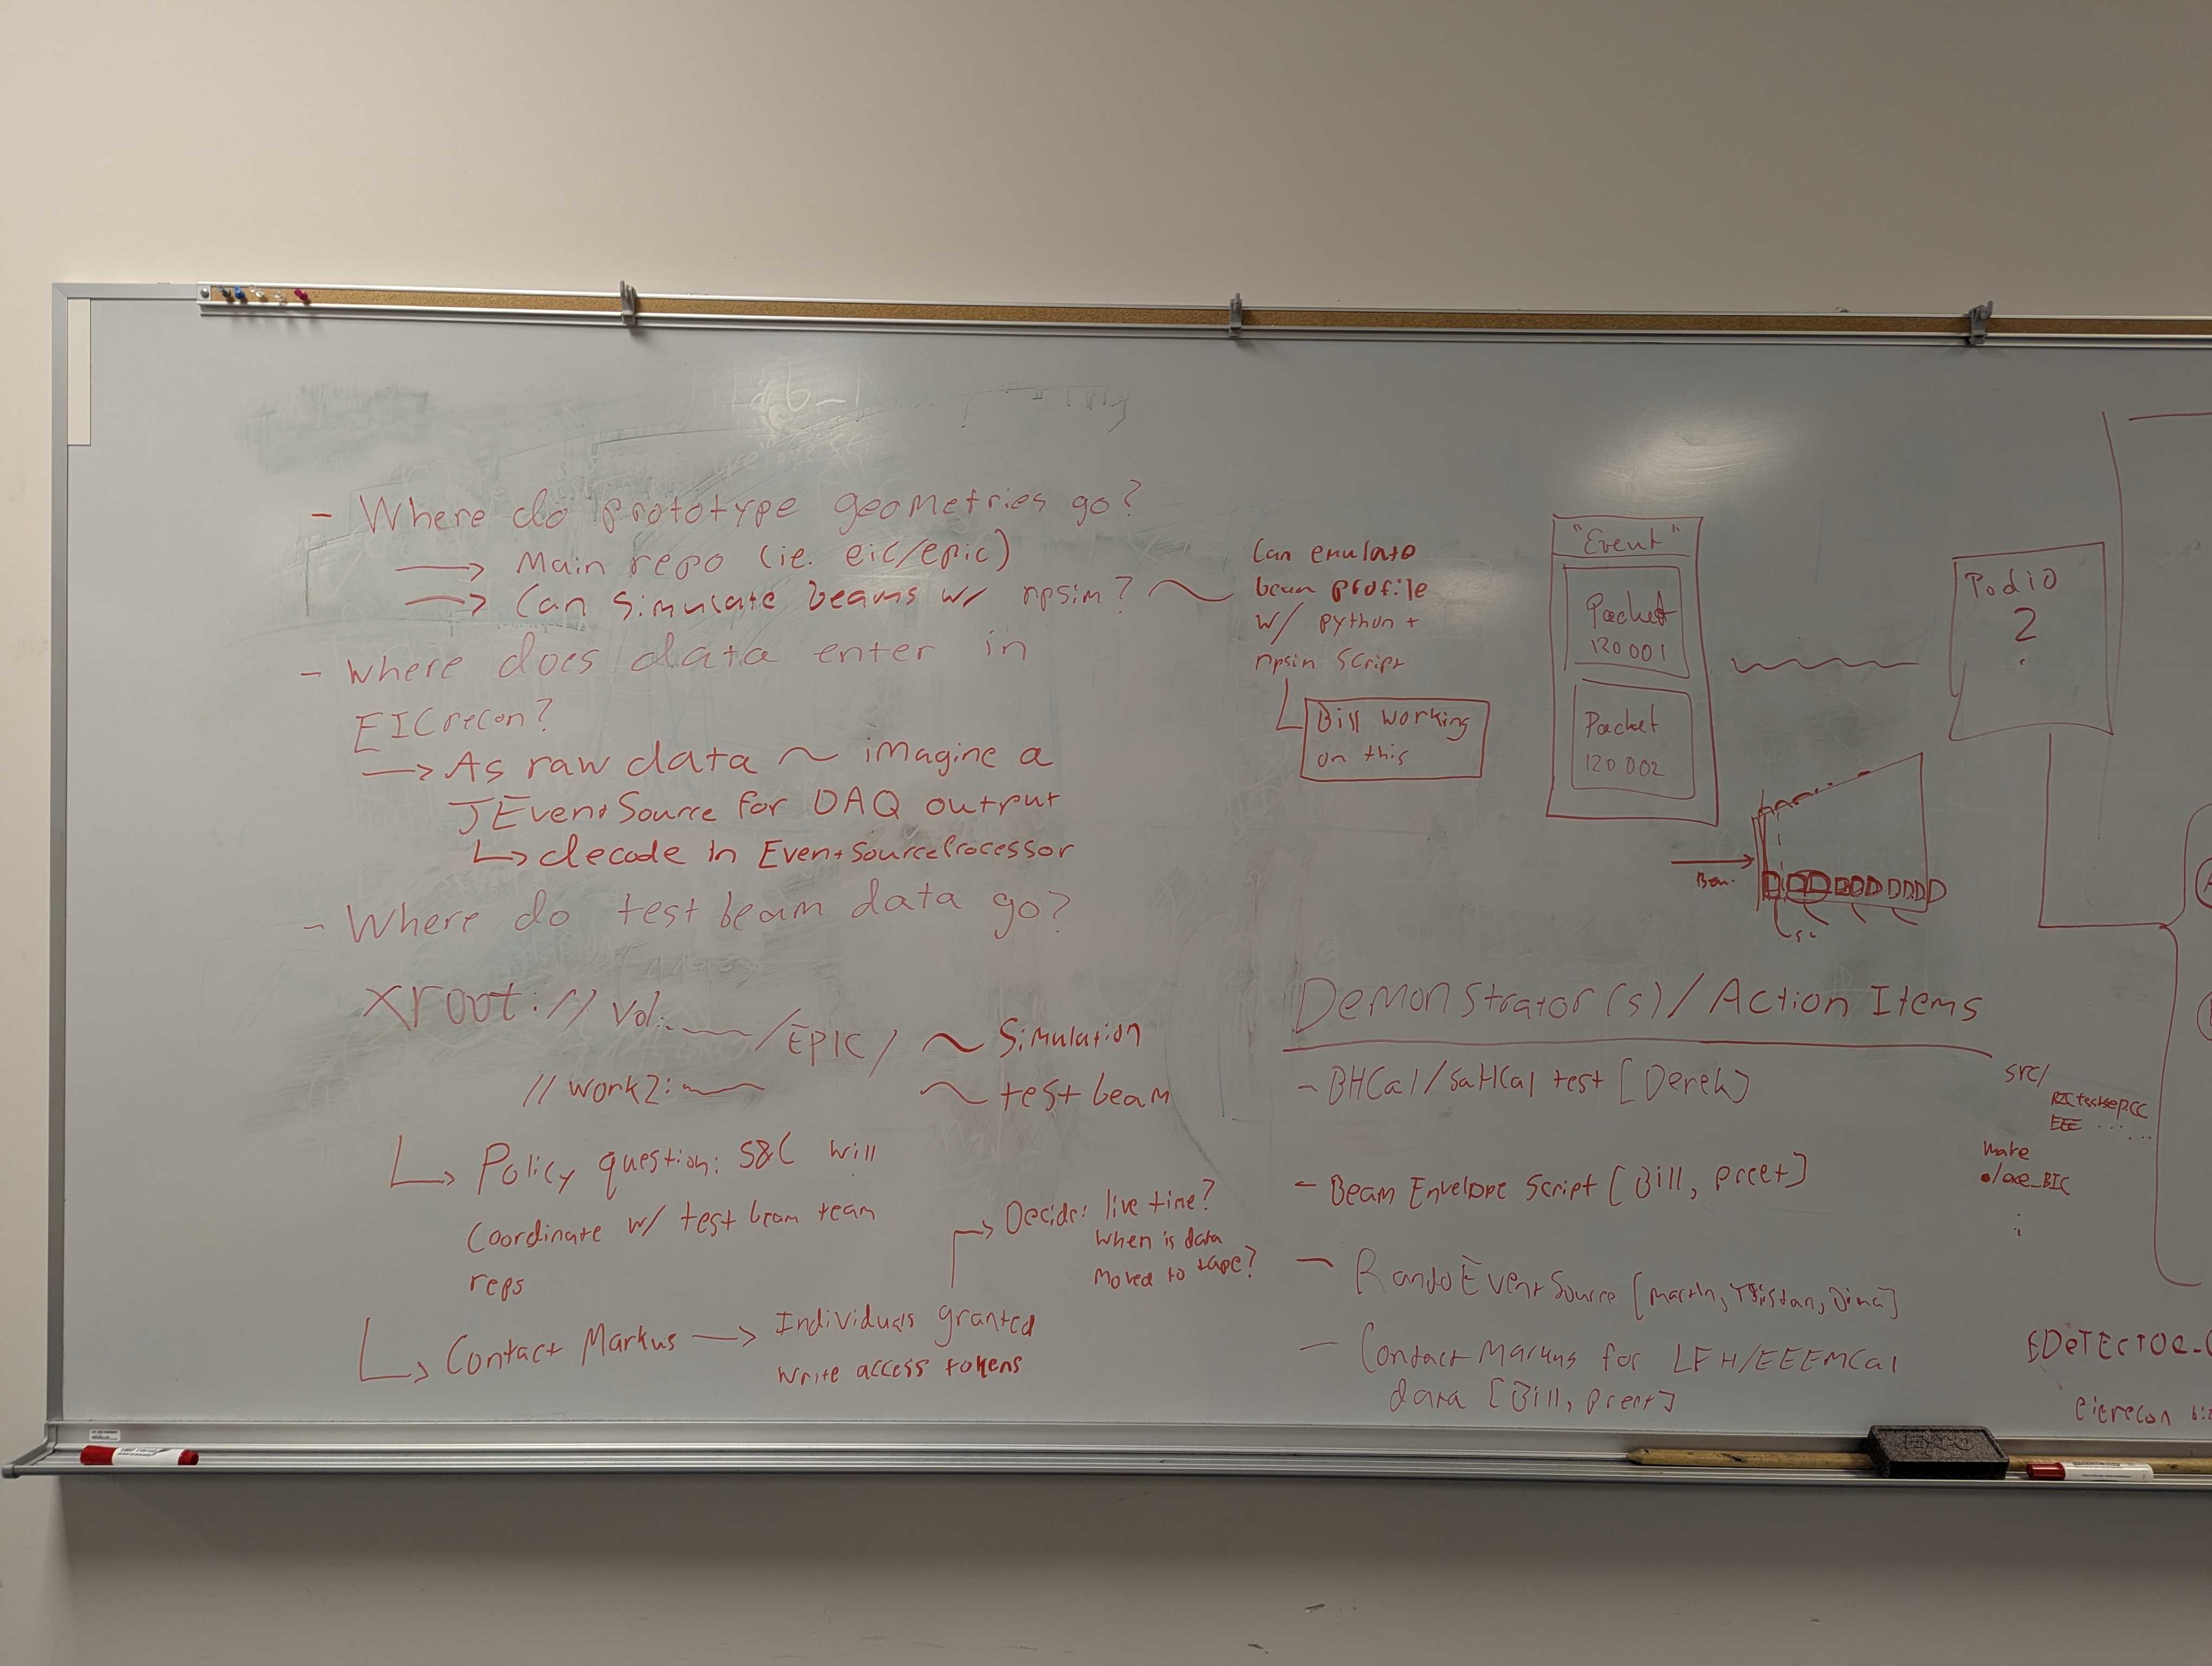 - Where do prototype geometries go?
→ Main repo (ie. eic/epic)
→ Can simulate beams w/ npsim? ~
Can emulate
beam profile
w/ python +
npsim script
Bill working
on this
- Where does data enter in
EICrecon?
→ As raw data ~ imagine a
JEventSource for DAQ output
↳ decode in EventSourceProcessor
- Where do test beam data go?
xroot:// vol: /EPIC/ ~ Simulation
// work2: ~ test beam
↳ Policy question: S&C will
Coordinate w/ test beam team
reps
↳ Contact Markus → Individuals granted
write access tokens
→ Decide: live time?
When is data
moved to tape?
"Event"
Packet
120001
Packet
120002
Podio
2
Demonstrator(s)/Action Items
- BHCal/SaHCal test [Derek]
- Beam Envelope Script [Bill, preet]
- RandoEventSource [Martin, Tristan, Dima]
- Contact Markus for LFH/EEEMCal
data [Bill, preet]
src/
EEE ......
make
eicrecon